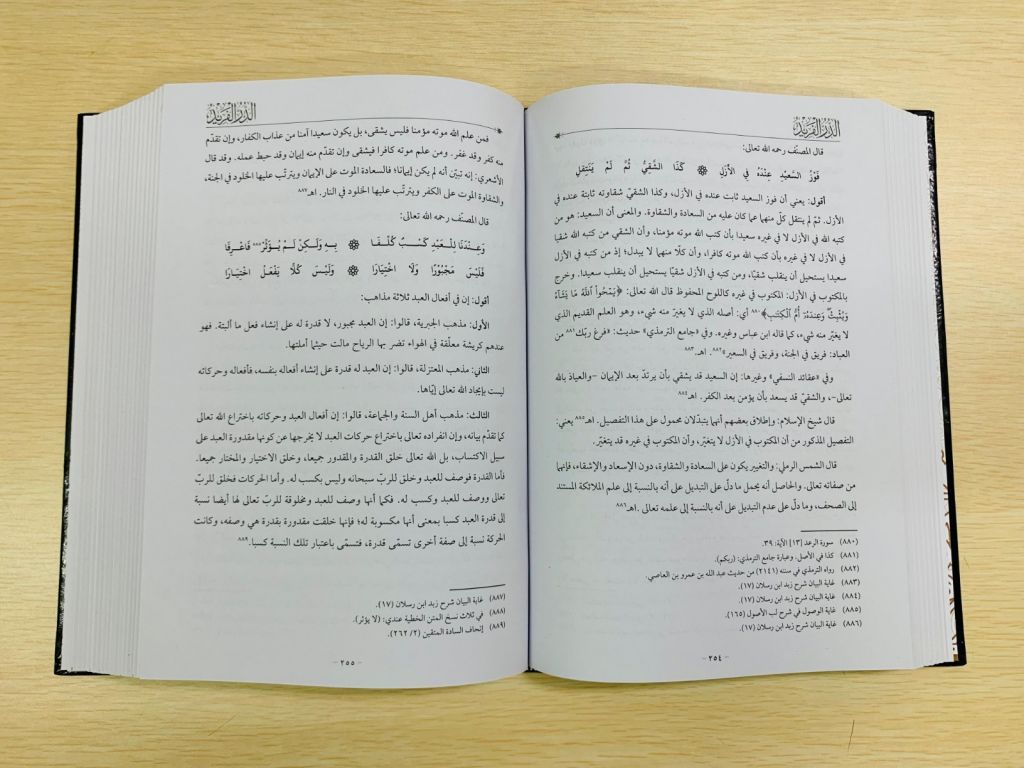 الدر الفريد
قال المصنّف رحمه الله تعالى:
فَوْزُ السَّعِيْدِ عِنْدَهُ فِي الأَزَلِ ۞ كَذَا الشَّقِيُّ ثُمَّ لَمْ يَنْتَقِلِ
أقول: يعني أن فوز السعيد ثابت عنده في الأزل، وكذا الشقيّ شقاوته ثابتة عنده في
الأزل. ثمّ لم ينتقل كلّ منهما عما كان عليه من السعادة والشقاوة. والمعنى أن السعيد: هو من
كتبه الله في الأزل لا في غيره سعيدا بأن كتب الله موته مؤمنا، وأن الشقي من كتبه الله شقيا
في الأزل لا في غيره بأن كتب الله موته كافرا، وأن كلّا منهما لا يبدل؛ إذ من كتبه في الأزل
سعيدا يستحيل أن ينقلب شقيّا، ومن كتبه في الأزل شقيّا يستحيل أن ينقلب سعيدا. وخرج
بالمكتوب في الأزل: المكتوب في غيره كاللوح المحفوظ قال الله تعالى: ﴿يَمْحُواْ ٱللَّهُ مَا يَشَآءُ
وَيُثْبِتُۖ وَعِندَهُۥٓ أُمُّ ٱلْكِتَٰبِ﴾٨٨٠ أي: أصله الذي لا يغيّر منه شيء، وهو العلم القديم الذي
لا يغيّر منه شيء، كما قاله ابن عباس وغيره. وفي «جامع الترمذي» حديث: «فرغ ربّك٨٨١ من
العباد: فريق في الجنة، وفريق في السعير»٨٨٢. اهـ.٨٨٣
وفي «عقائد النسفي» وغيرها: إن السعيد قد يشقي بأن يرتدّ بعد الإيمان -والعياذ بالله
تعالى-، والشقيّ قد يسعد بأن يؤمن بعد الكفر. اهـ٨٨٤
قال شيخ الإسلام: وإطلاق بعضهم أنهما يتبدّلان محمول على هذا التفصيل. اهـ٨٨٥ يعني:
التفصيل المذكور من أن المكتوب في الأزل لا يتغيّر، وأن المكتوب في غيره قد يتغيّر.
قال الشمس الرملي: والتغيير يكون على السعادة والشقاوة، دون الإسعاد والإشقاء، فإنهما
من صفاته تعالى. والحاصل أنه يحمل ما دلّ على التبديل على أنه بالنسبة إلى علم الملائكة المستند
إلى الصحف، وما دلّ على عدم التبديل على أنه بالنسبة إلى علمه تعالى .اهـ٨٨٦
(٨٨٠) سورة الرعد [١٣] الآية: ٣٩.
(٨٨١) كذا في الأصل. وعبارة جامع الترمذي: (ربكم).
(٨٨٢) رواه الترمذي في سننه (٢١٤١) من حديث عبد الله بن عمرو بن العاصي.
(٨٨٣) غاية البيان شرح زبد ابن رسلان (١٧).
(٨٨٤) غاية البيان شرح زبد ابن رسلان (١٧).
(٨٨٥) غاية الوصول في شرح لب الأصول (١٦٥).
(٨٨٦) غاية البيان شرح زبد ابن رسلان (١٧).
- ٢٥٤ -
الدر الفريد
فمن علم الله موته مؤمنا فليس يشقى، بل يكون سعيدا آمنا من عذاب الكفار، وإن تقدّم
منه كفر وقد غفر. ومن علم موته كافرا فيشقى وإن تقدّم منه إيمان وقد حبط عمله. وقد قال
الأشعري: إنه تبيّن أنه لم يكن إيمانا؛ فالسعادة الموت على الإيمان ويترتّب عليها الخلود في الجنة،
والشقاوة الموت على الكفر ويترتّب عليها الخلود في النار. اهـ٨٨٧
قال المصنّف رحمه الله تعالى:
وَعِنْدَنَا لِلْعَبْدِ كَسْبٌ كُلِّفَا ۞ بِهِ وَلَكِنْ لَمْ يُؤَثِّرْ٨٨٨ فَاعْرِفَا
فَلَيْسَ مَجْبُوْرًا وَلَا اخْتِيَارَا ۞ وَلَيْسَ كُلًّا يَفْعَلُ اخْتِيَارَا
أقول: إن في أفعال العبد ثلاثة مذاهب:
الأول: مذهب الجبرية، قالوا: إن العبد مجبور، لا قدرة له على إنشاء فعل ما ألبتة. فهو
عندهم كريشة معلّقة في الهواء تضر بها الرياح مالت حيثما أملتها.
الثاني: مذهب المعتزلة، قالوا: إن العبد له قدرة على إنشاء أفعاله بنفسه، فأفعاله وحركاته
ليست بإيجاد الله تعالى إيّاها.
الثالث: مذهب أهل السنة والجماعة، قالوا: إن أفعال العبد وحركاته باختراع الله تعالى
كما تقدّم بيانه، وإن انفراده تعالى باختراع حركات العبد لا يخرجها عن كونها مقدورة العبد على
سبيل الاكتساب، بل الله تعالى خلق القدرة والمقدور جميعا، وخلق الاختيار والمختار جميعا.
فأما القدرة فوصف للعبد وخلق للربّ سبحانه وليس بكسب له. وأما الحركات فخلق للربّ
تعالى ووصف للعبد وكسب له. فكما أنها وصف للعبد ومخلوقة للربّ تعالى لها أيضا نسبة
إلى قدرة العبد كسبا بمعنى أنها مكسوبة له؛ فإنها خلقت مقدورة بقدرة هي وصفه، وكانت
الحركة نسبة إلى صفة أخرى تسمّى قدرة، فتسمّى باعتبار تلك النسبة كسبا.٨٨٩
(٨٨٧) غاية البيان شرح زبد ابن رسلان (١٧).
(٨٨٨) في ثلاث نسخ المتن الخطية عندي: (لا يؤثر).
(٨٨٩) إتحاف السادة المتقين (٢/ ٢٦٢).
- ٢٥٥ -